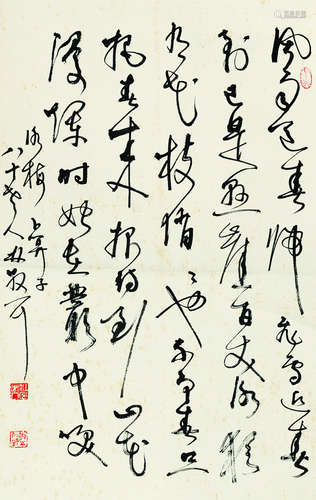 风雨送春归飞雪迎春
到已是悬崖百丈冰犹
有花枝俏〻也不争春只
把春来报待到山花
漫烂时她在叢中笑
咏梅 卜算子
八十老人林散耳